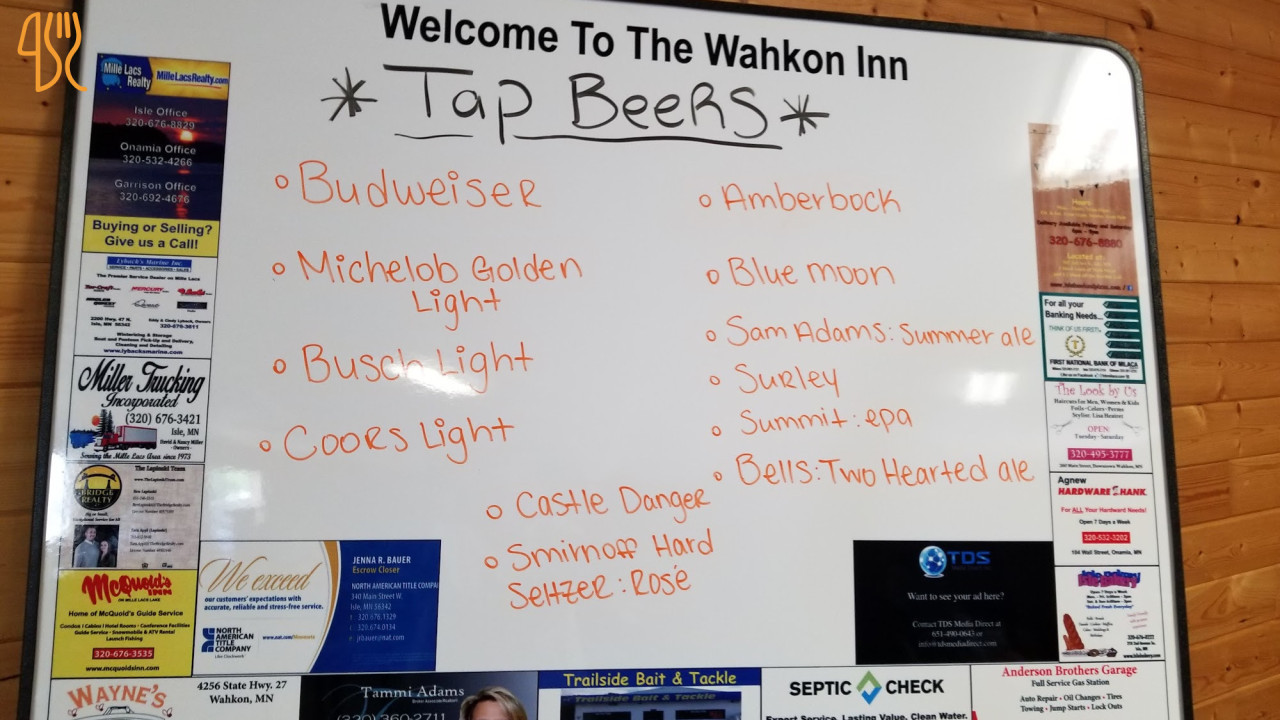 Welcome To The Wahkon Inn
* Tap Beers *
Budweiser
Michelob Golden
Light
Busch Light
Coors Light
Amberbock
Blue moon
Sam Adams: Summer ale
Surley
Summit: epa
Bells: Two Hearted ale
Castle Danger
Smirnoff Hard
Seltzer: Rosé
Mille Lacs
Realty
MilleLacsRealty.com
Isle Office
320-676-8829
Onamia Office
320-532-4266
Garrison Office
320-692-4676
Buying or Selling?
Give us a Call!
Lybach's Marine Inc.
The Premier Service Dealer on Mille Lacs
MERCURY
2200 Hwy. 47 N.
Isle, MN 56342
320-676-3611
Winterizing & Storage
Boat and Pontoon Pick-Up and Delivery,
Cleaning and Detailing
www.lybacksmarina.com
Miller Trucking
Incorporated
(320) 676-3421
Isle, MN
David & Nancy Miller
- Owners -
Serving the Mille Lacs Area since 1973
BRIDGE
REALTY
McQuoid's
INN
ON MILLE LACS LAKE
Home of McQuoid's Guide Service
Condos | Cabins | Hotel Rooms - Conference Facilities
Guide Service - Snowmobile & ATV Rental
Launch Fishing
320-676-3535
www.mcquoidsinn.com
We exceed
our customers' expectations with
accurate, reliable and stress-free service.
NORTH
AMERICAN
TITLE
COMPANY
JENNA R. BAUER
Escrow Closer
NORTH AMERICAN TITLE COMPA
340 Main Street W.
Isle, MN 56342
320.676.1329
320.674.0134
jrbauer@nat.com
320-676-8880
Located at:
For all your
Banking Needs...
THINK OF US FIRST!
FIRST NATIONAL BANK OF MILACA
The Look by Us
Haircuts for Men, Women & Kids
Foils · Colors · Perms
Stylist: Lisa Nestner
OPEN:
Tuesday - Saturday
320-495-3777
Agnew
HARDWARE HANK
For ALL Your Hardware Needs!
Open 7 Days a Week
320-532-3202
104 Wall Street, Onamia, MN
TDS
Want to see your ad here?
Contact TDS Media Direct at
651-490-0643 or
info@tdsmediadirect.com
WAYNE'S
4256 State Hwy. 27
Wahkon, MN
Tammi Adams
(320) 360-2711
Trailside Bait & Tackle
Trailside Bait & Tackle
SEPTIC CHECK
Expert Service. Lasting Value. Clean Water.
Anderson Brothers Garage
Full Service Gas Station
Auto Repair • Oil Changes • Tires
Towing • Jump Starts • Lock Outs